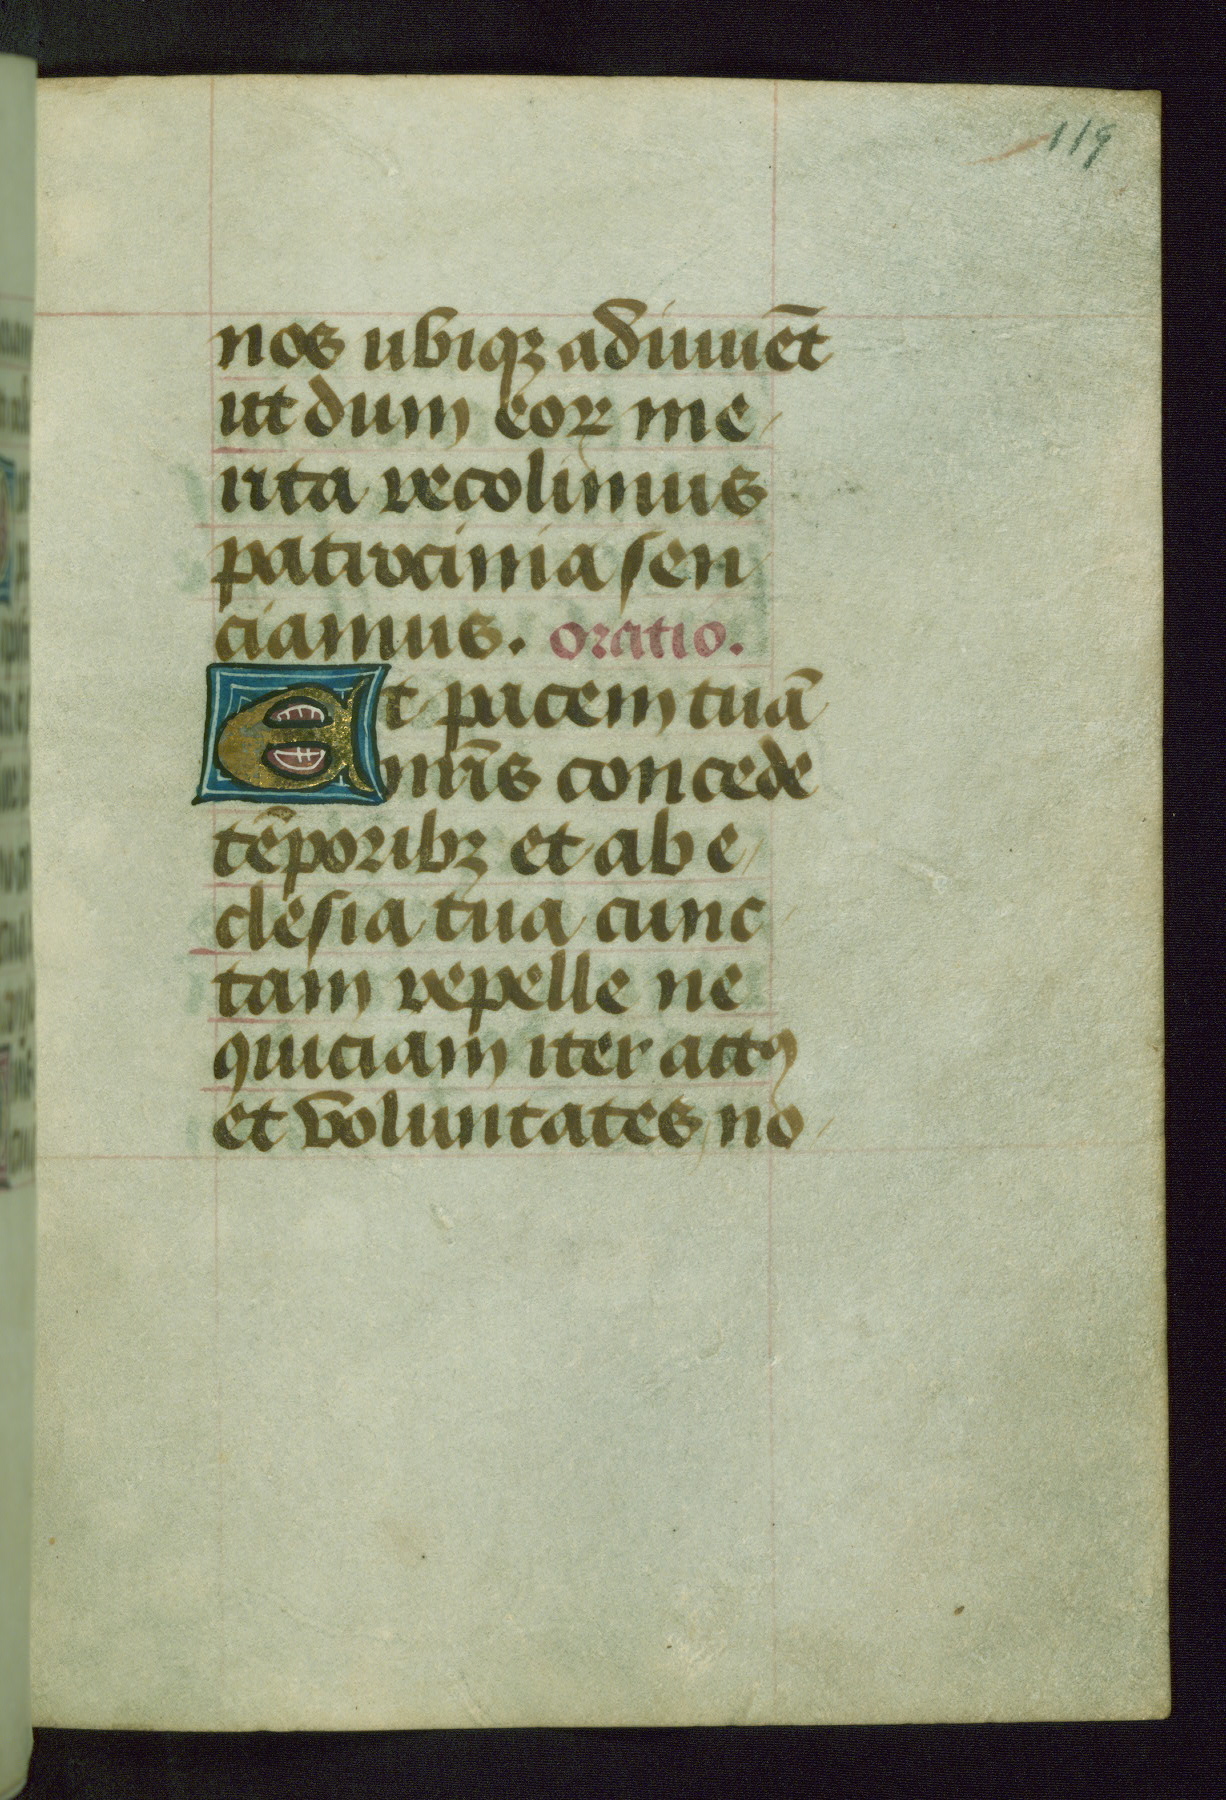 119
nos ubiqꝫ adiuuēt
ut dum eoꝝ me
rita recolimus
patrocinia sen
ciamus. oratio.
Et pacem tuā
nrīs concede
tēporibꝫ et ab e
clesia tua cunc
tam repelle ne
quiciam iter actꝯ
et voluntates no